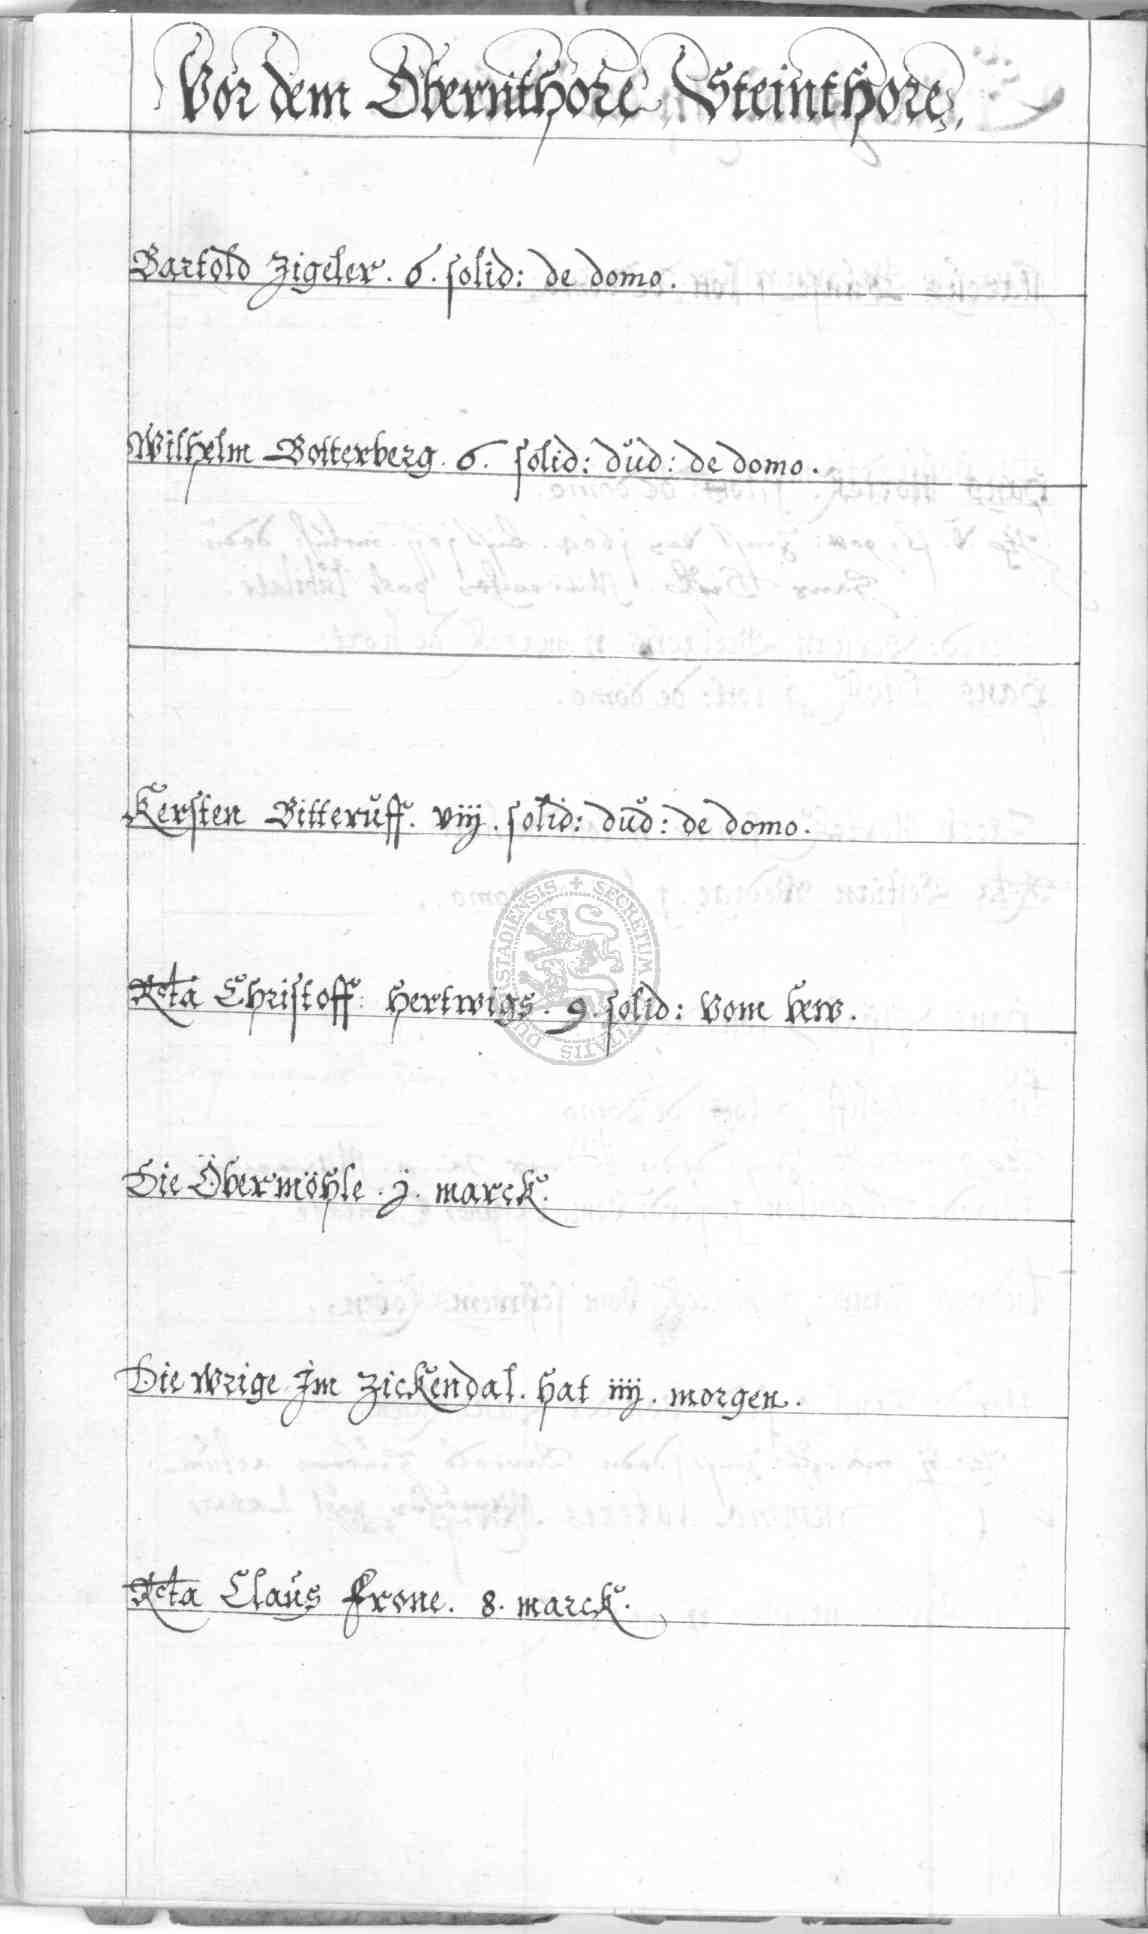 Vor dem Obernthore Steinthore,
Bartold Zigeler. 6. solid: de domo.
Wilhelm Botterberg. 6. solid: dud: de domo.
Kersten Bitteruff. viij. solid: dud: de domo.
Rcta Christoff Hertwigs. 9. solid: Vom
Die Öbermöhle. j. marck.
Die wrige Jm Zickendal. hat iiij. morgen.
Rcta Claus Frone. 8. marck.
SECRETUM